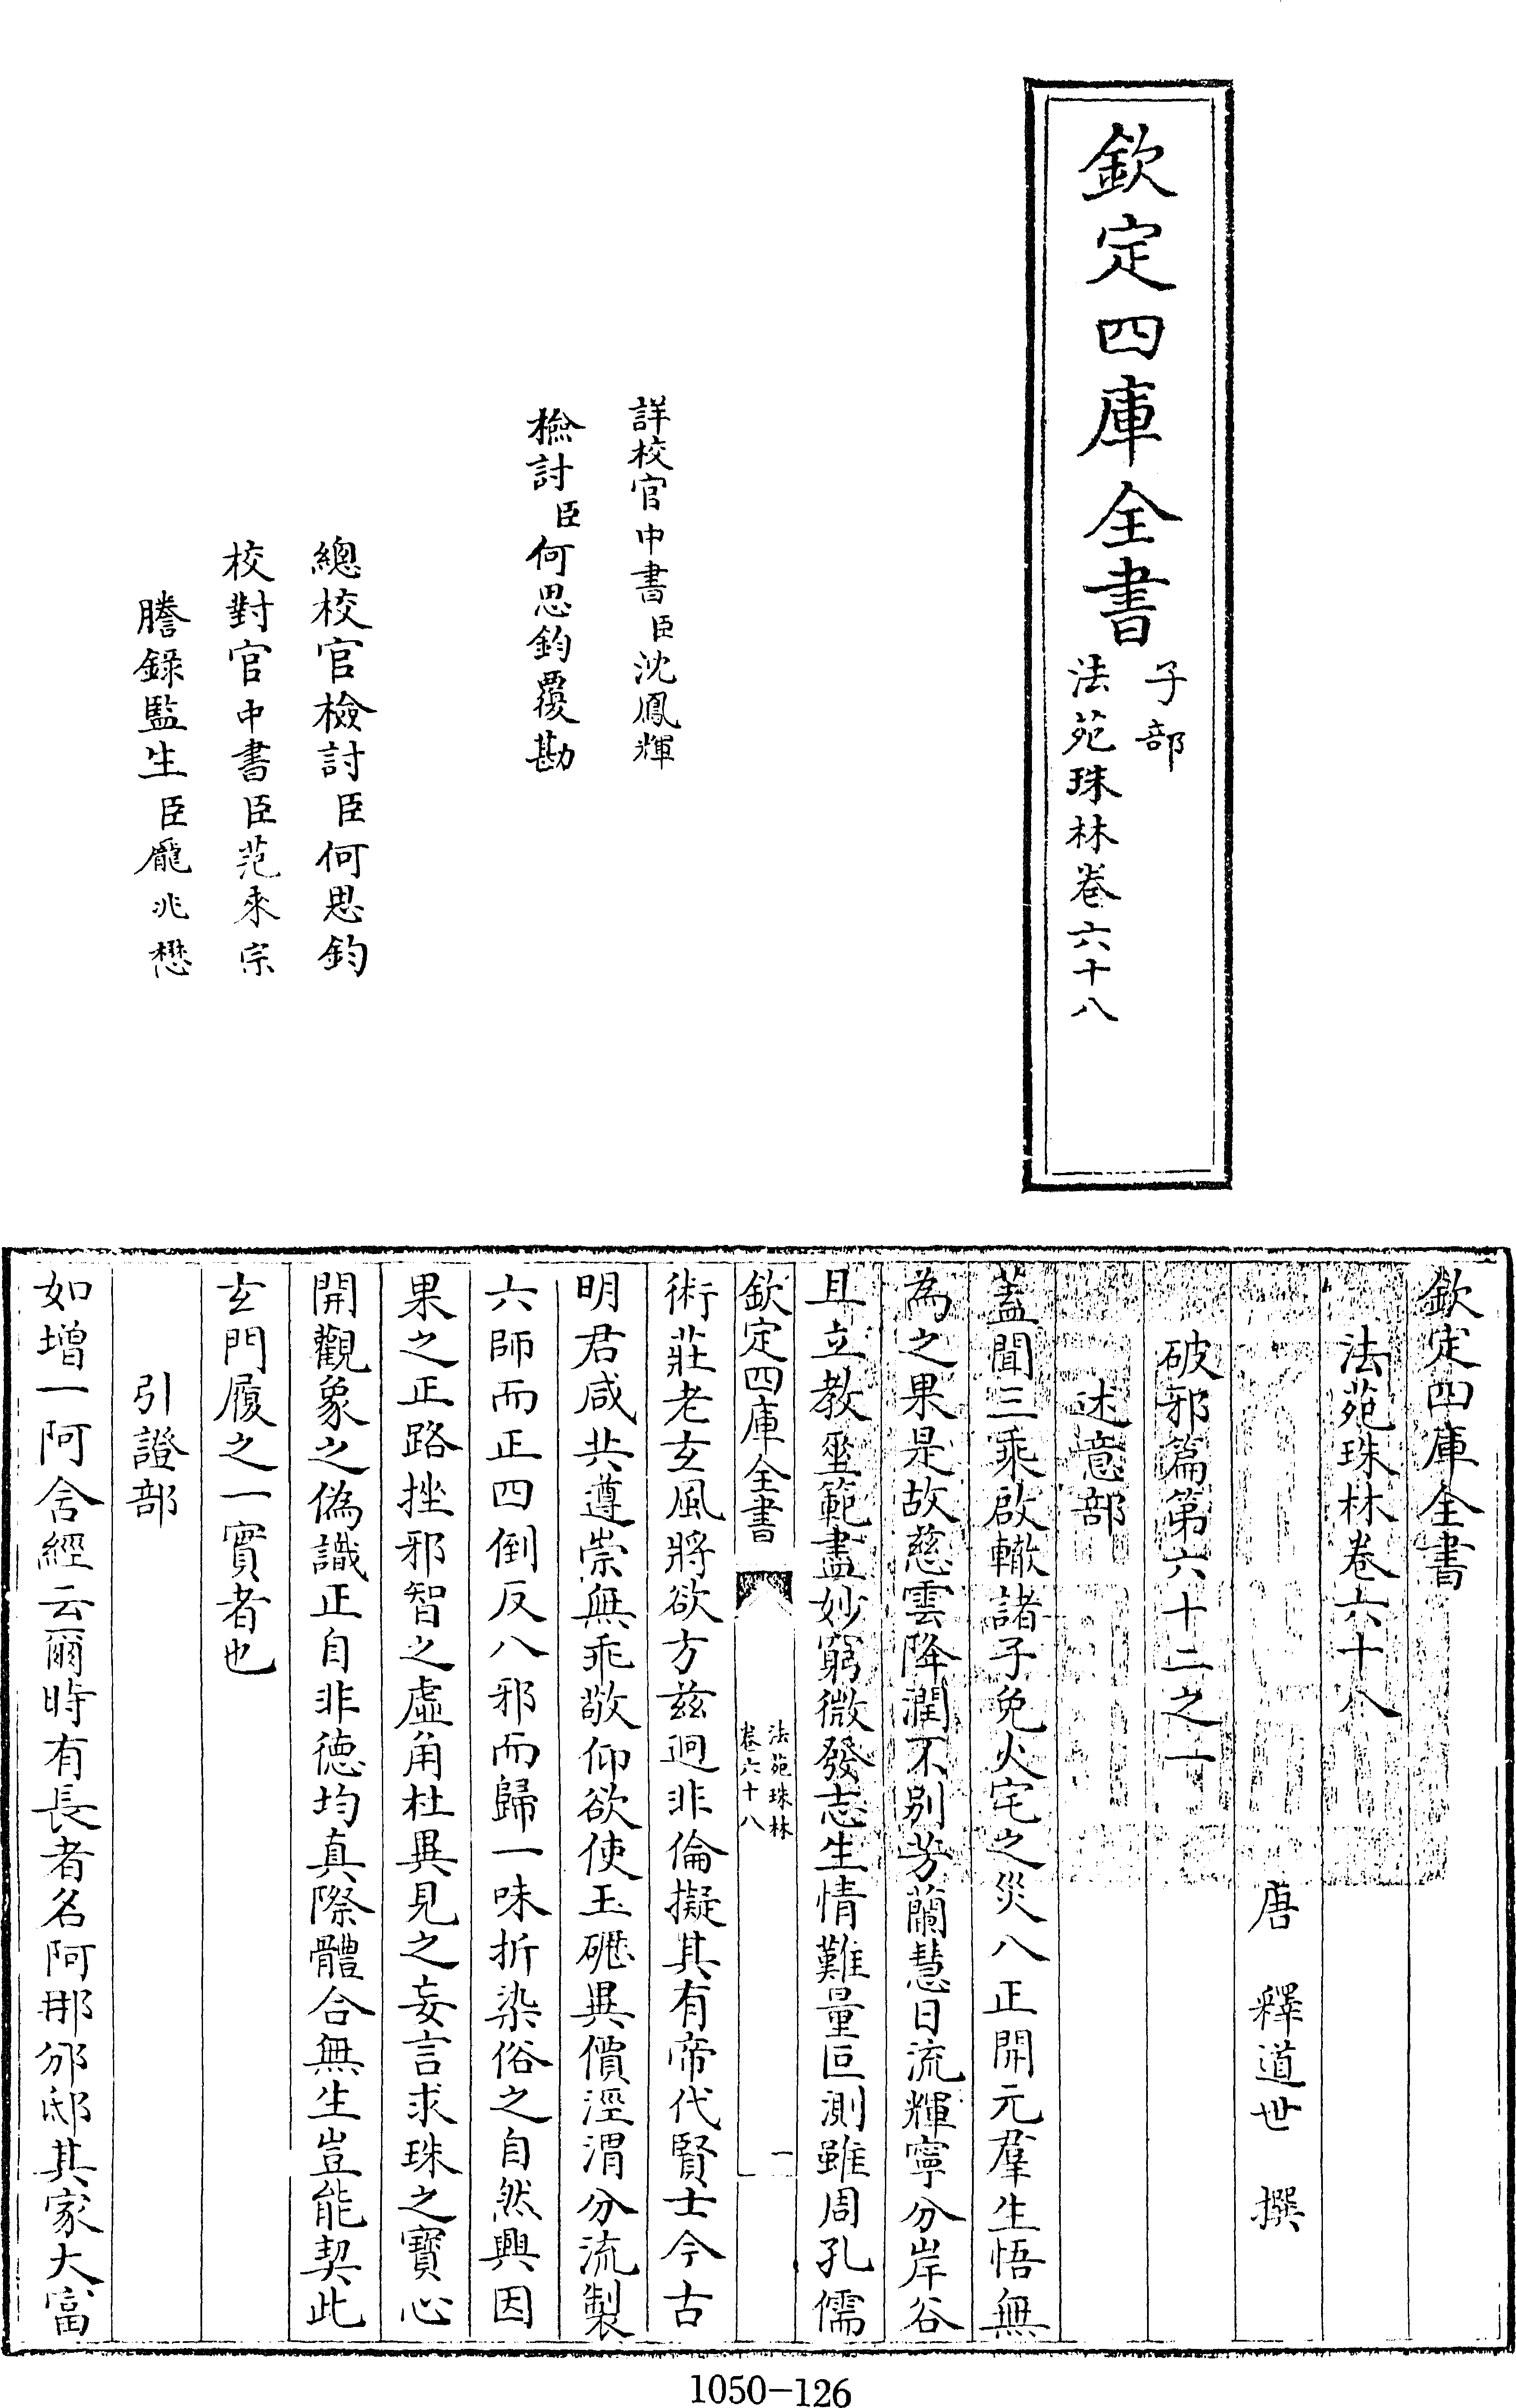 欽定四庫全書
子部
法苑珠林卷六十八
詳校官中書臣沈鳳輝
檢討臣何思鈞覆勘
總校官檢討臣何思鈞
校對官中書臣范来宗
謄錄監生臣龐兆懋
欽定四庫全書
法苑珠林卷六十八
唐 釋道世 撰
破邪篇第六十二之一
述意部
蓋聞三乘啟轍諸子免火宅之災八正開元羣生悟無
為之果是故慈雲降潤不别芳蘭慧日流輝寧分岸谷
且立教垂範盡妙窮微發志生情難量叵測雖周孔儒
欽定四庫全書
法苑珠林
卷六十八
一
術莊老玄風將欲方兹迥非倫擬其有帝代賢士今古
明君咸共遵崇無乖敬仰欲使玉礰異價涇渭分流製
六師而正四倒反八邪而歸一味折染俗之自然興因
果之正路挫邪智之虛角杜異見之妄言求珠之寶心
開觀象之偽識正自非德均真際體合無生豈能契此
玄門履之一實者也
引證部
如增一阿含經云爾時有長者名阿那邠邸其家大富
1050-126